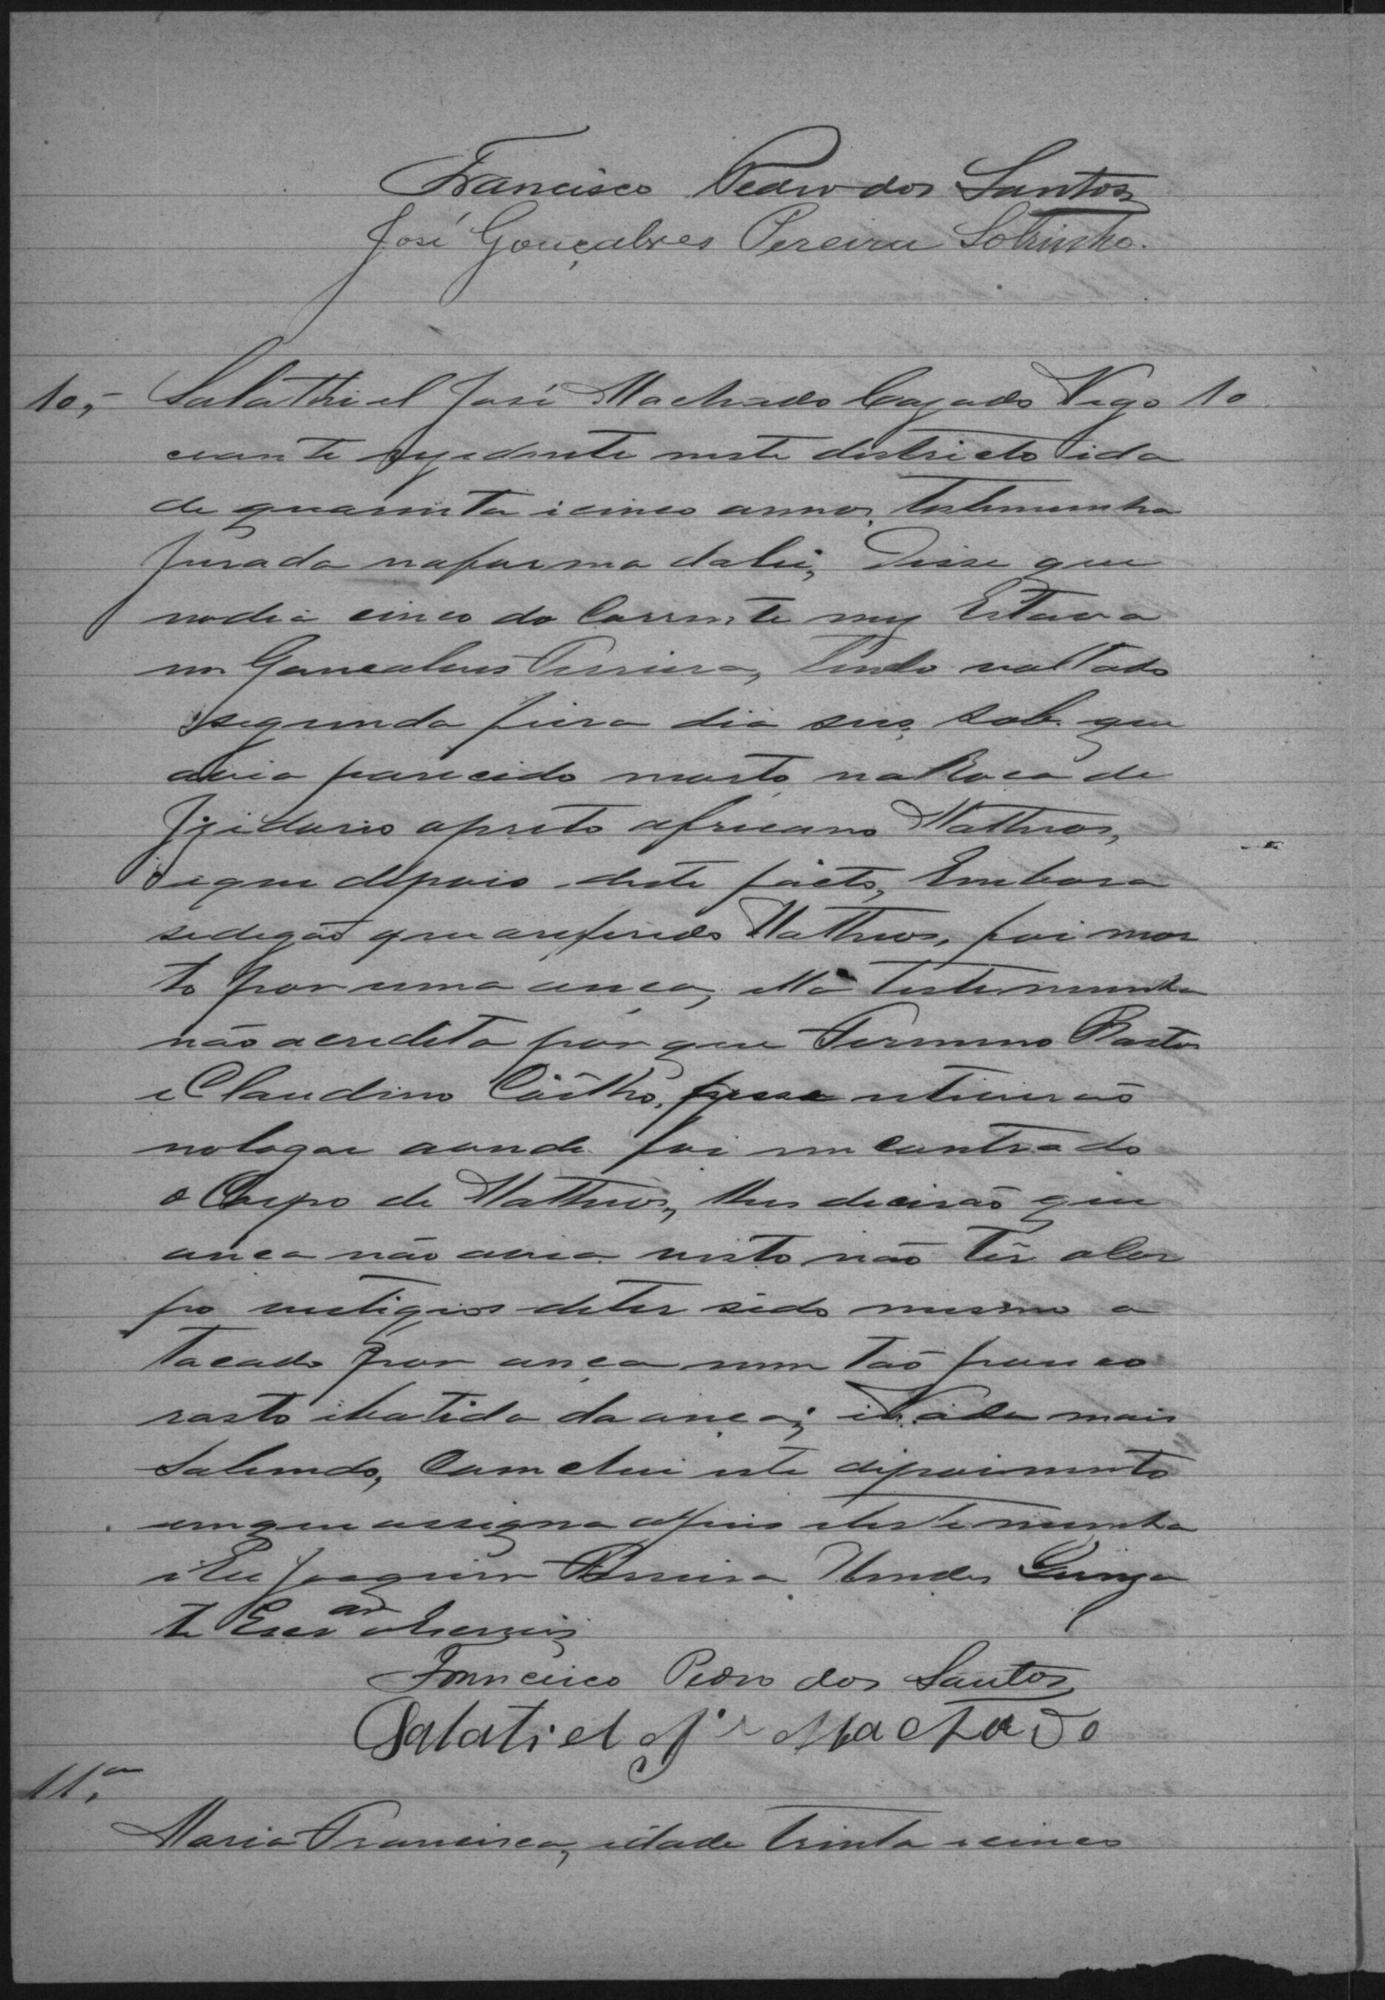 Francisco Pedro dos Santos
José Gonçalves Pereira Sobrinho.
10,- Salathiel José Machado Cazado Nego 10
ciante rezidente neste districto ida
de quarenta i cinco annos, testemunha
jurada na forma da lei, Disse que
no dia cinco do Corrente mez Estava
em Gonsalves Ferreira, tendo voltado
segunda feira dia seis, sobe que
avia parecido morto na Roca de
Izidorio o preto africano Matheos,
i que depois deste facto, Embora
se diga que o referido Matheos, foi mor
to por uma onça, ella testemunha
não acredita por que Firmino Bastos
e Claudino Coêlho, que estiverão
no logar aonde foi encontrado
o Corpo de Matheos, lhes dicerão que
onça não avia visto não têr o Cor
po vestigios de ter sido mesmo a
tacado por onça nem tão pouco
rasto i batida da onça; i Nada mais
Sabendo, Comclui este depoimento
em que assigna o Juis i testemunha
i Eu Joaquim Pereira Mendes
te Escrivão
Francisco Pedro dos Santos
Salatiel Je Machado
11,a
Maria Francisca, idade trinta e cinco